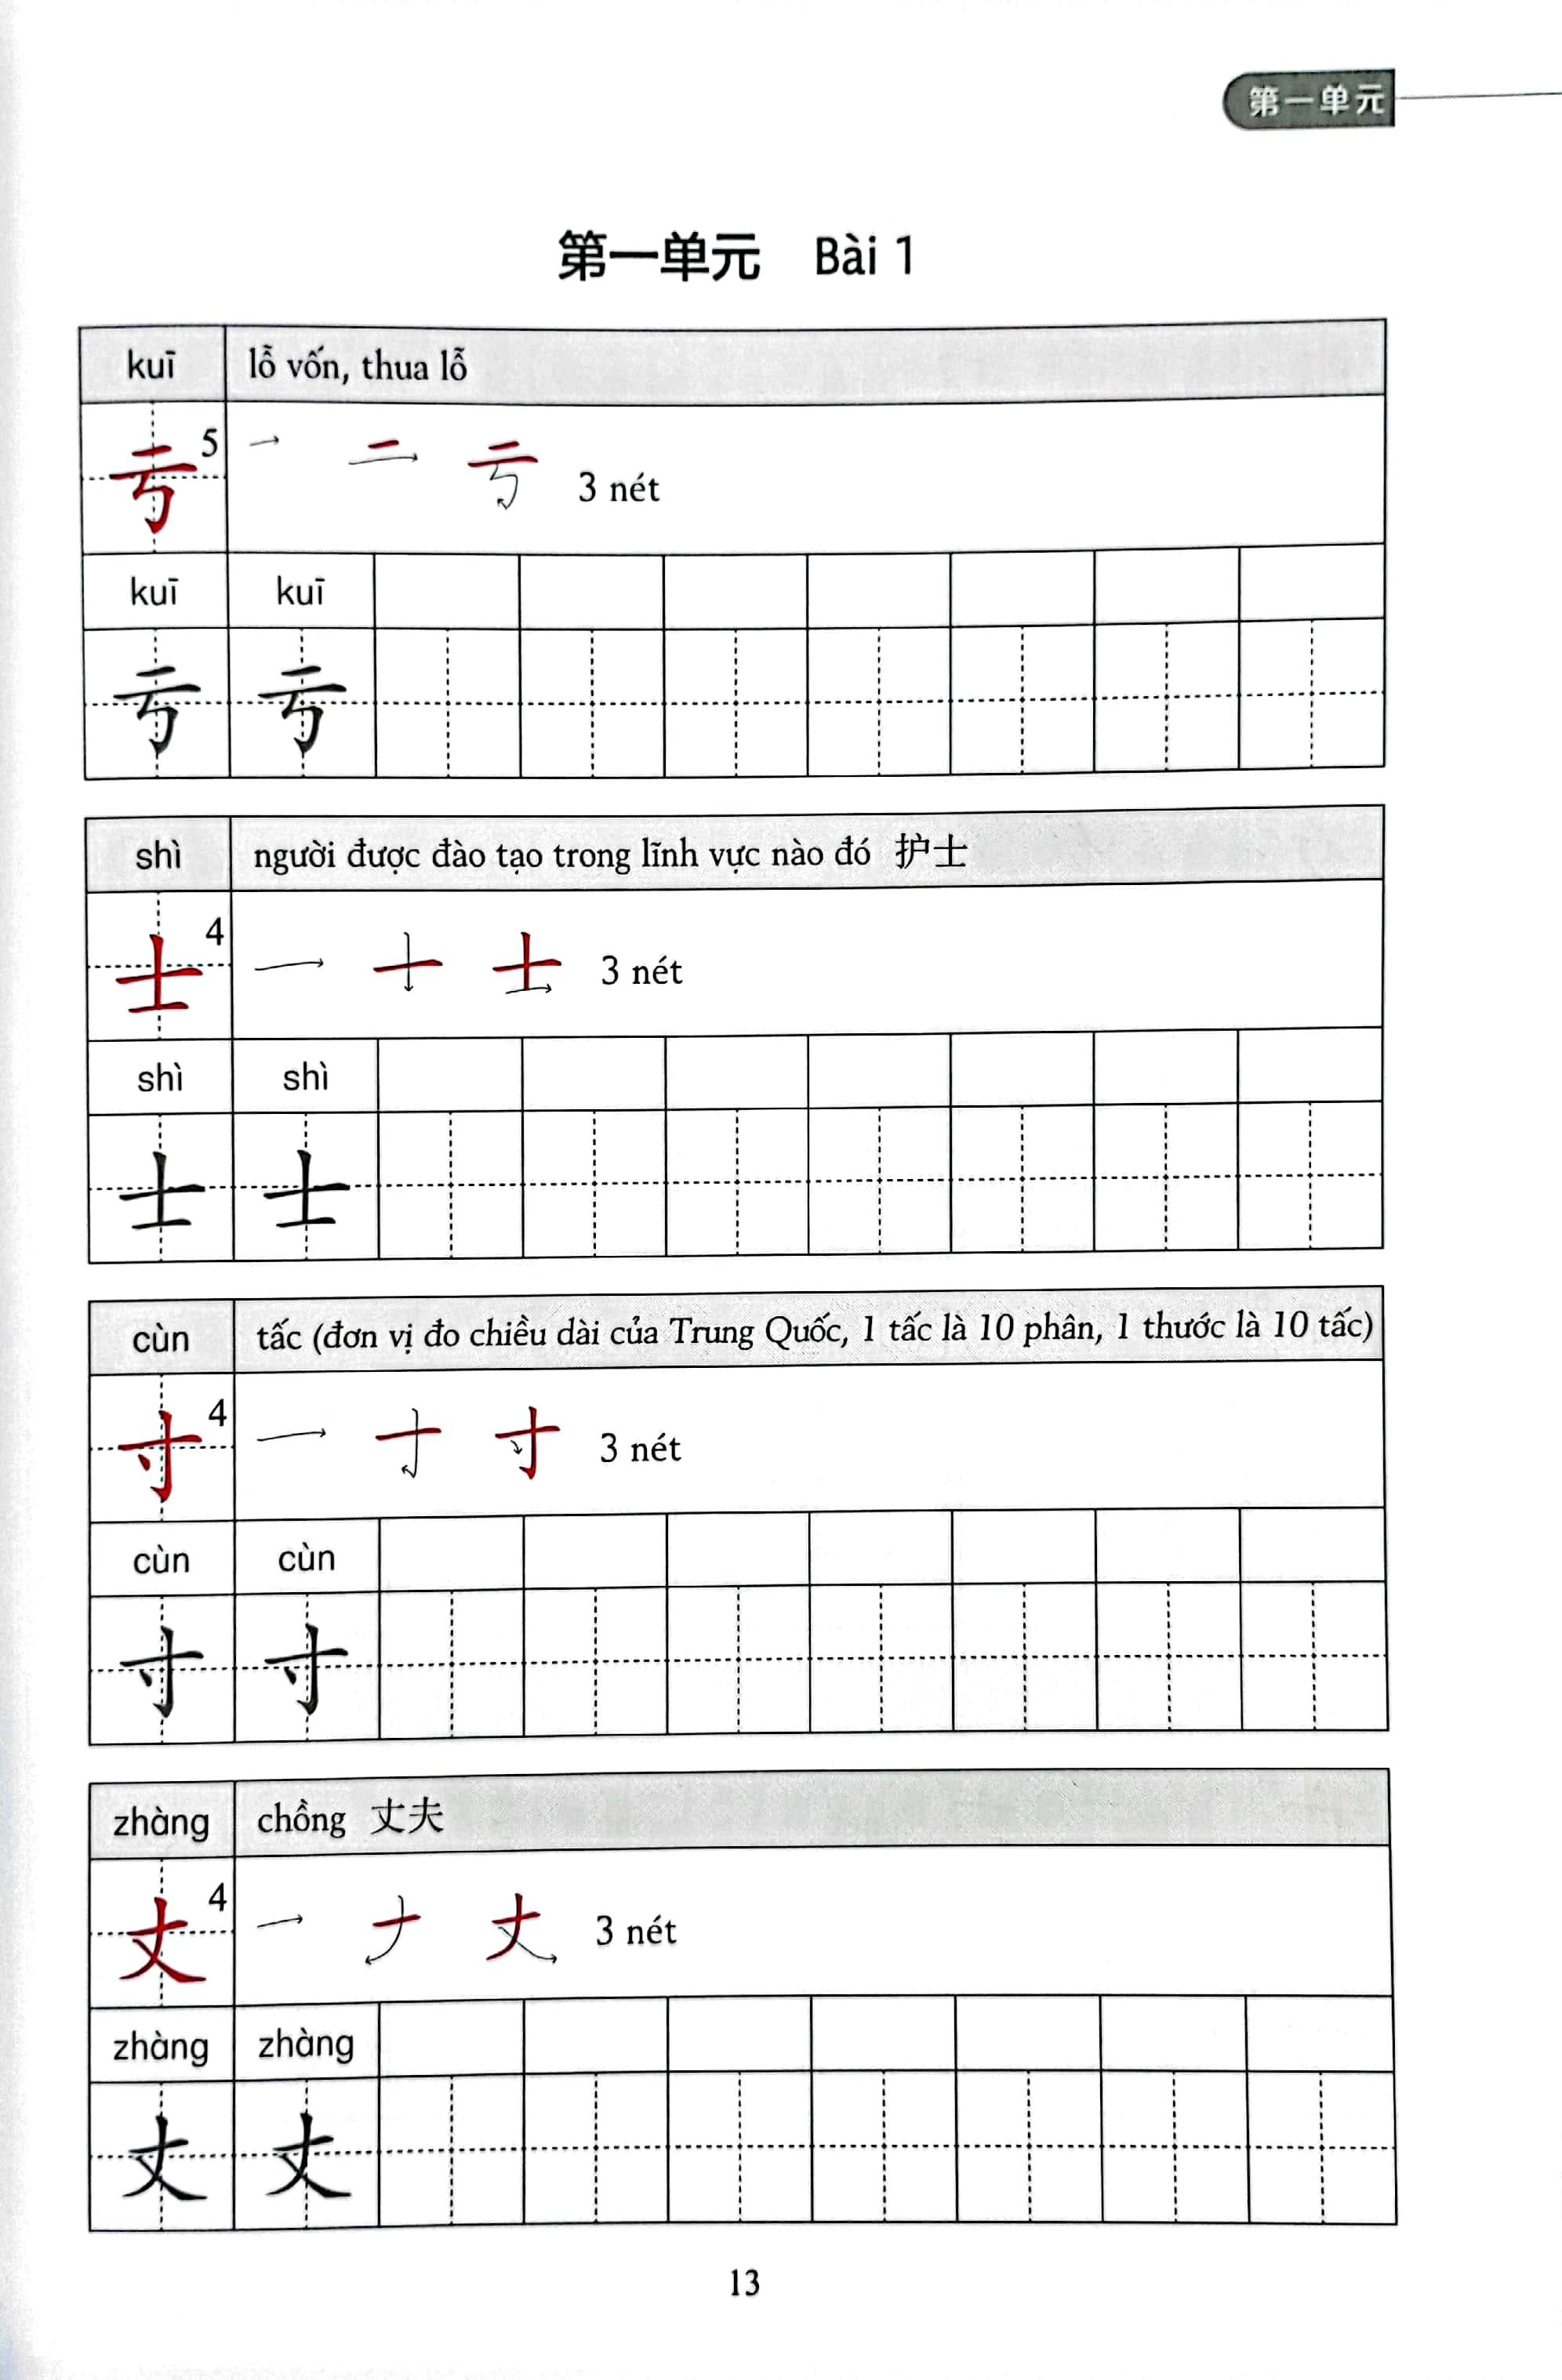 第一单元
第一单元 Bài 1
kuī lỗ vốn, thua lỗ
亏 5 一 二 亏 3 nét
kuī kuī
亏 亏
shì người được đào tạo trong lĩnh vực nào đó 护士
士 4 一 十 士 3 nét
shì shì
士 士
cùn tấc (đơn vị đo chiều dài của Trung Quốc, 1 tấc là 10 phân, 1 thước là 10 tấc)
寸 4 一 寸 3 nét
cùn cùn
寸 寸
zhàng chồng 丈夫
丈 4 一 丈 3 nét
zhàng zhàng
丈 丈
13